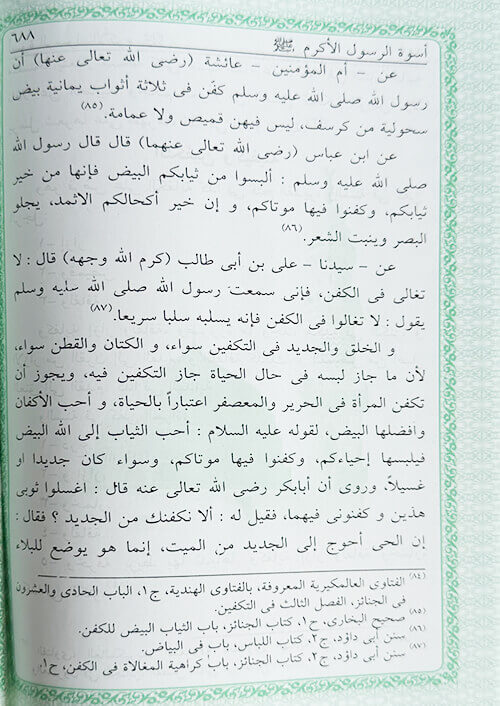 أسوة الرسول الأكرم ﷺ ٦٨٨
عن – أم المؤمنين – عائشة (رضى الله تعالى عنها) أن
رسول الله صلى الله عليه وسلم كفّن فى ثلاثة أثواب يمانية بيض
سحولية من كرسف، ليس فيهن قميص ولا عمامة.(٨٥)
عن ابن عباس (رضى الله تعالى عنهما) قال قال رسول الله
صلى الله عليه وسلم : ألبسوا من ثيابكم البيض فإنها من خير
ثيابكم، وكفنوا فيها موتاكم، و إن خير أكحالكم الاثمد، يجلو
البصر وينبت الشعر.(٨٦)
عن – سيدنا – على بن أبى طالب (كرم الله وجهه) قال : لا
تغالى فى الكفن، فإنى سمعت رسول الله صلى الله عليه وسلم
يقول : لا تغالوا فى الكفن فإنه يسلبه سلبا سريعا.(٨٧)
و الخلق والجديد فى التكفين سواء، و الكتان والقطن سواء،
لأن ما جاز لبسه فى حال الحياة جاز التكفين فيه، ويجوز أن
تكفن المرأة فى الحرير والمعصفر اعتباراً بالحياة، و أحب الأكفان
وافضلها البيض، لقوله عليه السلام : أحب الثياب إلى الله البيض
فيلبسها إحياءكم، وكفنوا فيها موتاكم، وسواء كان جديدا او
غسيلاً. وروى أن أبابكر رضى الله تعالى عنه قال : اغسلوا ثوبى
هذين و كفنونى فيهما، فقيل له : ألا نكفنك من الجديد ؟ فقال :
إن الحى أحوج إلى الجديد من الميت، إنما هو يوضع للبلاء
(٨٤) الفتاوى العالمكيرية المعروفة، بالفتاوى الهندية، ج١، الباب الحادى والعشرون
فى الجنائز، الفصل الثالث فى التكفين.
(٨٥) صحيح البخارى، ح١، كتاب الجنائز، باب الثياب البيض للكفن.
(٨٦) سنن أبى داؤد، ج٢، كتاب اللباس، باب فى البياض.
(٨٧) سنن أبى داؤد، ج٢، كتاب الجنائز، باب كراهية المغالاة فى الكفن، ح١.